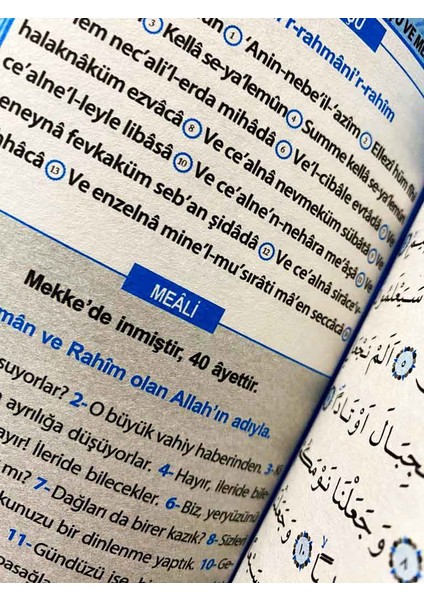 ÜŞÜ
U VE ME
r-rahmâni'r-rahîm
Anin-nebe'il-'azîm 2 Ellezî hüm fîhi
3 Kellâ se-ya'lemûn 4 Summe kellâ se-ya'lemûn
lem nec'ali'l-erda mihâdâ 6 Ve'l-cibâle evtâdâ 7 Ve
halaknâküm ezvâcâ 8 Ve ce'alnâ nevmeküm sübâtâ 9 Ve
ce'alne'l-leyle libâsâ 10 Ve ce'alne'n-nehâra me'âşâ 11 Ve
beneynâ fevkaküm seb'an şidâdâ 12 Ve ce'alnâ sirâce'v-
vehhâcâ 13 Ve enzelnâ mine'l-mu'sırâti mâ'en seccâcâ
MEÂLİ
Mekke'de inmiştir, 40 âyettir.
mân ve Rahîm olan Allah'ın adıyla.
suyorlar? 2- O büyük vahiy haberinden. 3- Ki
a ayrılığa düşüyorlar. 4- Hayır, ileride bile-
ayır! İleride bilecekler. 6- Biz, yeryüzünü
mı? 7- Dağları da birer kazık? 8- Sizleri
kunuzu bir dinlenme yaptık. 10- Ge-
11- Gündüzü ise
أَلَمْ نَجْعَلِ
أَوْتَادًا
وَجَعَلْنَا نَوْمَكُمْ
وَجَعَلْنَا